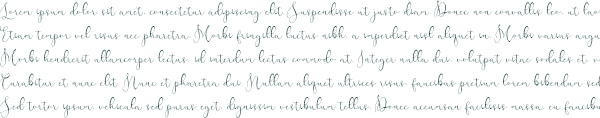 Lorem ipsum dolor sit amet, consectetur adipiscing elit. Suspendisse at justo diam. Donec non convallis leo, ut lao
Etiam tempor vel risus nec pharetra. Morbi fringilla luctus nibh, a imperdiet nisl aliquet in. Morbi varius augu
Morbi hendrerit ullamcorper lectus, id interdum lectus commodo at. Integer nulla dui, volutpat vitae sodales et, v
Curabitur et nunc elit. Nunc et pharetra dui. Nullam aliquet ultrices risus, faucibus pretium lorem bibendum sed
Sed tortor ipsum, vehicula sed purus eget, dignissim vestibulum tellus. Donec accumsan facilisis massa, eu faucibus